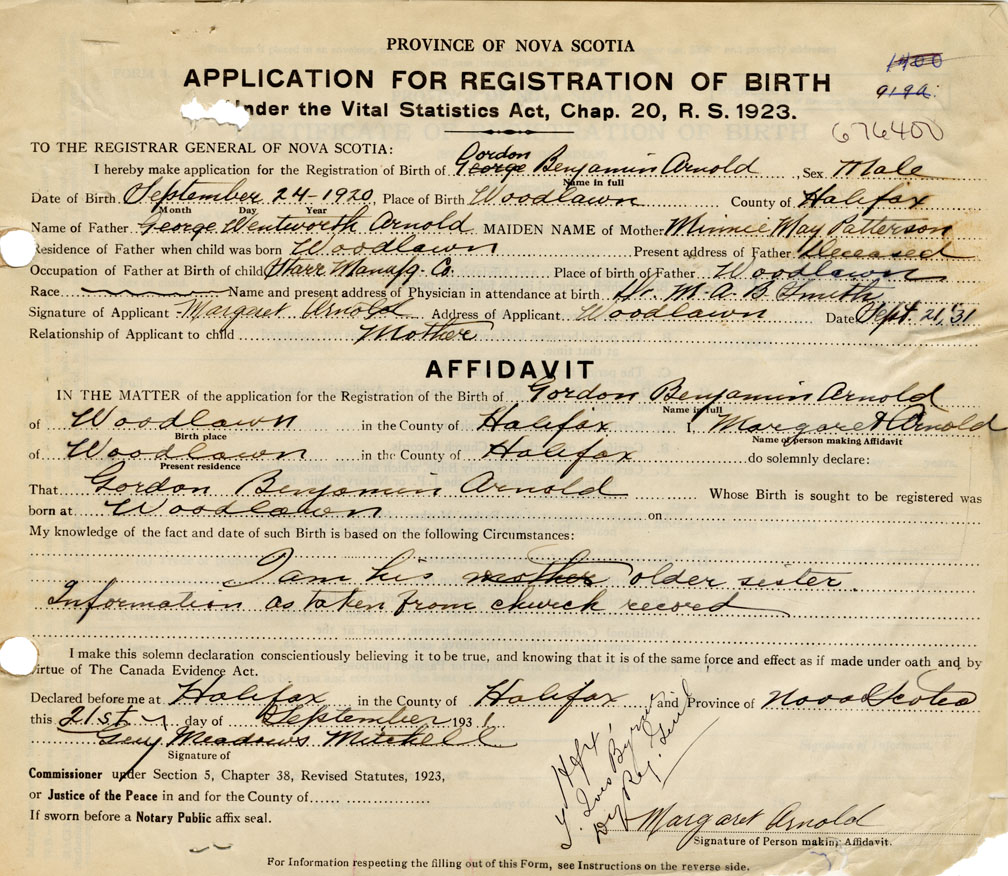 PROVINCE OF NOVA SCOTIA
1400
APPLICATION FOR REGISTRATION OF BIRTH
919a.
Under the Vital Statistics Act, Chap. 20, R. S. 1923.
676400
TO THE REGISTRAR GENERAL OF NOVA SCOTIA:
Gordon
I hereby make application for the Registration of Birth of George Benjamin Arnold Sex Male
Name in full
Date of Birth September 24-1920, Place of Birth Woodlawn County of Halifax
Month Day Year
Name of Father George Wentworth Arnold MAIDEN NAME of Mother Minnie May Patterson
Residence of Father when child was born Woodlawn Present address of Father Deceased
Occupation of Father at Birth of child Starr Manafg. Co. Place of birth of Father Woodlawn
Race Name and present address of Physician in attendance at birth Dr. M.A.B. Smith
Signature of Applicant Margaret Arnold Address of Applicant Woodlawn Date Sept. 21, '31
Relationship of Applicant to child Mother
AFFIDAVIT
IN THE MATTER of the application for the Registration of the Birth of Gordon Benjamin Arnold
Name in full
of Woodlawn in the County of Halifax I, Margaret Arnold
Birth place Name of person making Affidavit
of Woodlawn in the County of Halifax do solemnly declare:
Present residence
That Gordon Benjamin Arnold Whose Birth is sought to be registered was
born at Woodlawn on
My knowledge of the fact and date of such Birth is based on the following Circumstances:
I am his mother older sister.
Information as taken from church record
I make this solemn declaration conscientiously believing it to be true, and knowing that it is of the same force and effect as if made under oath and by
virtue of The Canada Evidence Act.
Declared before me at Halifax in the County of Halifax and Province of Nova Scotia
this 21st day of September 1931
Meadows Mitchell
Signature of
Commissioner under Section 5, Chapter 38, Revised Statutes, 1923,
or Justice of the Peace in and for the County of
If sworn before a Notary Public affix seal.
Margaret Arnold
Signature of Person making Affidavit.
For Information respecting the filling out of this Form, see Instructions on the reverse side.